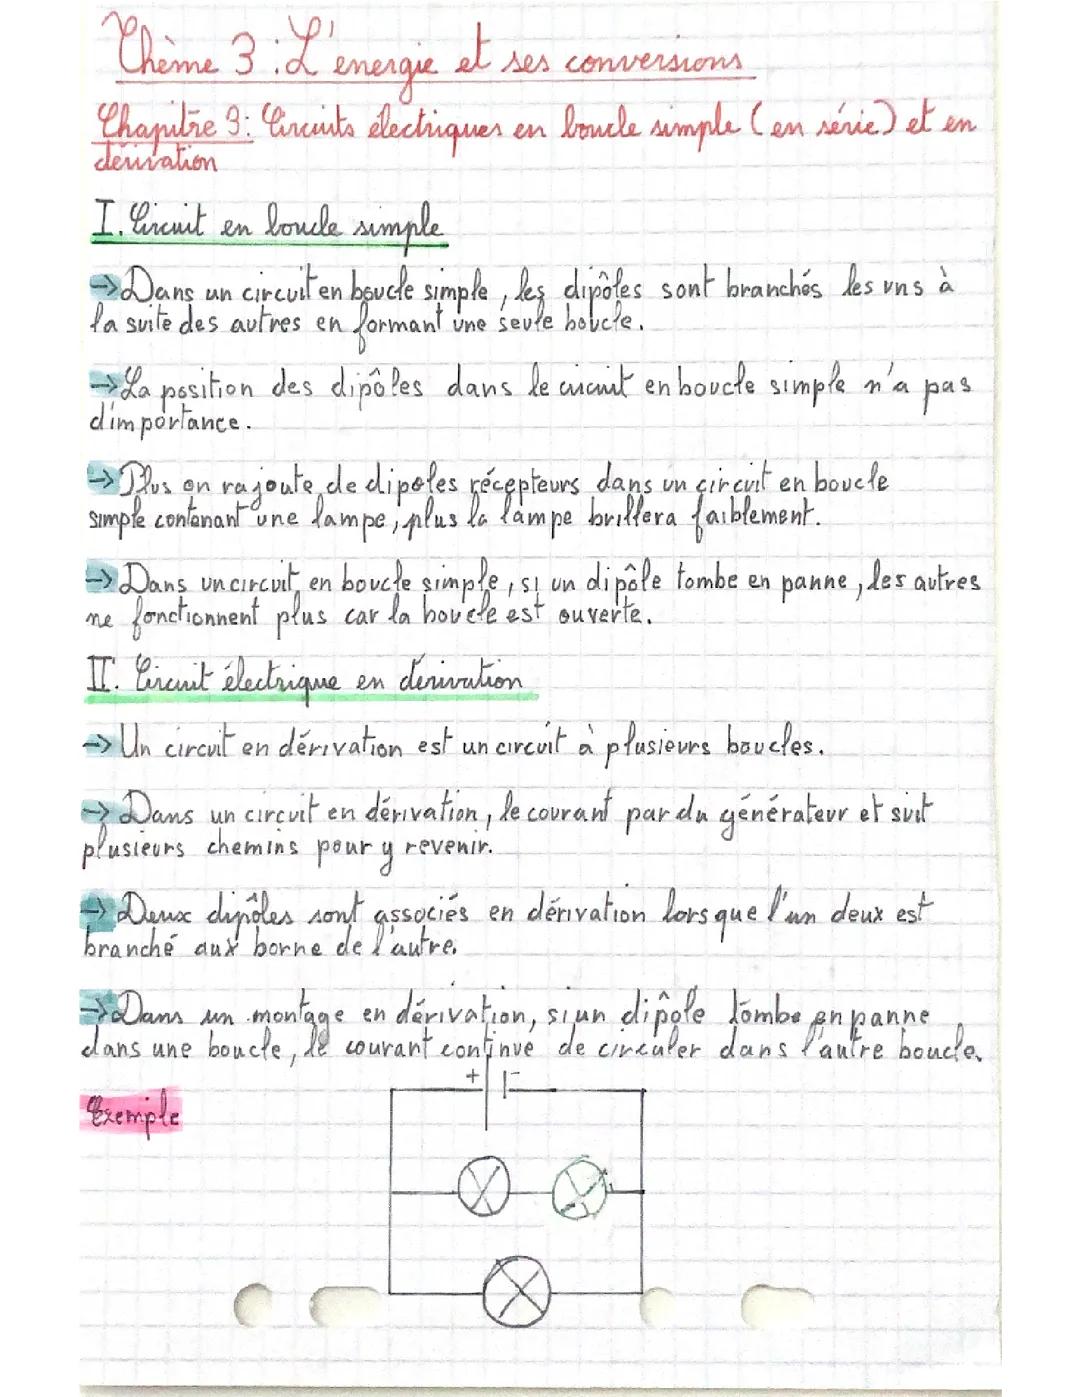 Thème 3 : L'énergie et ses conversions
Chapitre 3: Circuits électriques en boucle simple (en série) et en
dérivation
I. Circuit en boucle simple
→ Dans un circuit en boucle simple, les dipôles sont branchés les uns à
la suite des autres en formant une seule boucle.
→ La position des dipôles dans le circuit en boucle simple n'a pas
d'importance.
→ Plus on rajoute de dipoles récepteurs dans un circuit en boucle
simple contenant une lampe, plus la lampe brillera faiblement.
→ Dans un circuit en boucle simple, si un dipôle tombe en panne, les autres
ne fonctionnent plus car la boucle est ouverte.
II. Circuit électrique en dérivation
→ Un circuit en dérivation est un circuit à plusieurs boucles.
→ Dans un circuit en dérivation, le courant par du générateur et suit
plusieurs chemins pour y revenir.
→ Deux dipôles sont associés en dérivation lorsque l'un deux est
branché aux borne de l'autre.
→ Dans un montage en dérivation, si un dipôle tombe en panne
dans une boucle, le courant continue de circuler dans l'autre boucle.
+ -
Exemple